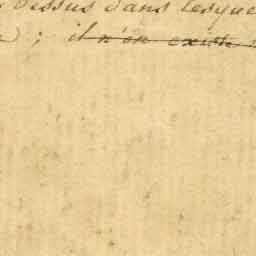 dessus dans lesque
; il n'en existe